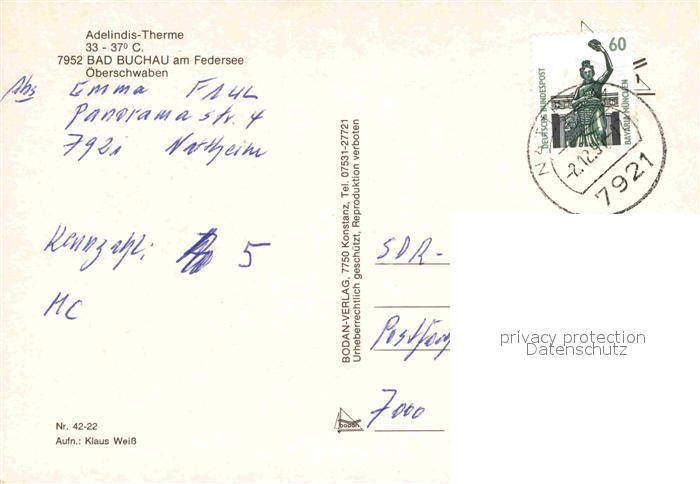 Adelindis-Therme
33 - 37º C.
7952 BAD BUCHAU am Federsee
Oberschwaben
Abs Emma
Panoramastr. 4
7921 Nattheim
Kennzahl: 5
MC
Nr. 42-22
Aufn.: Klaus Weiß
BODAN-VERLAG, 7750 Konstanz, Tel. 07531-27721
Urheberrechtlich geschützt, Reproduktion verboten
bodan
60
DEUTSCHE BUNDESPOST
BAVARIA MÜNCHEN
7921
SDR-
7000
privacy protection
Datenschutz